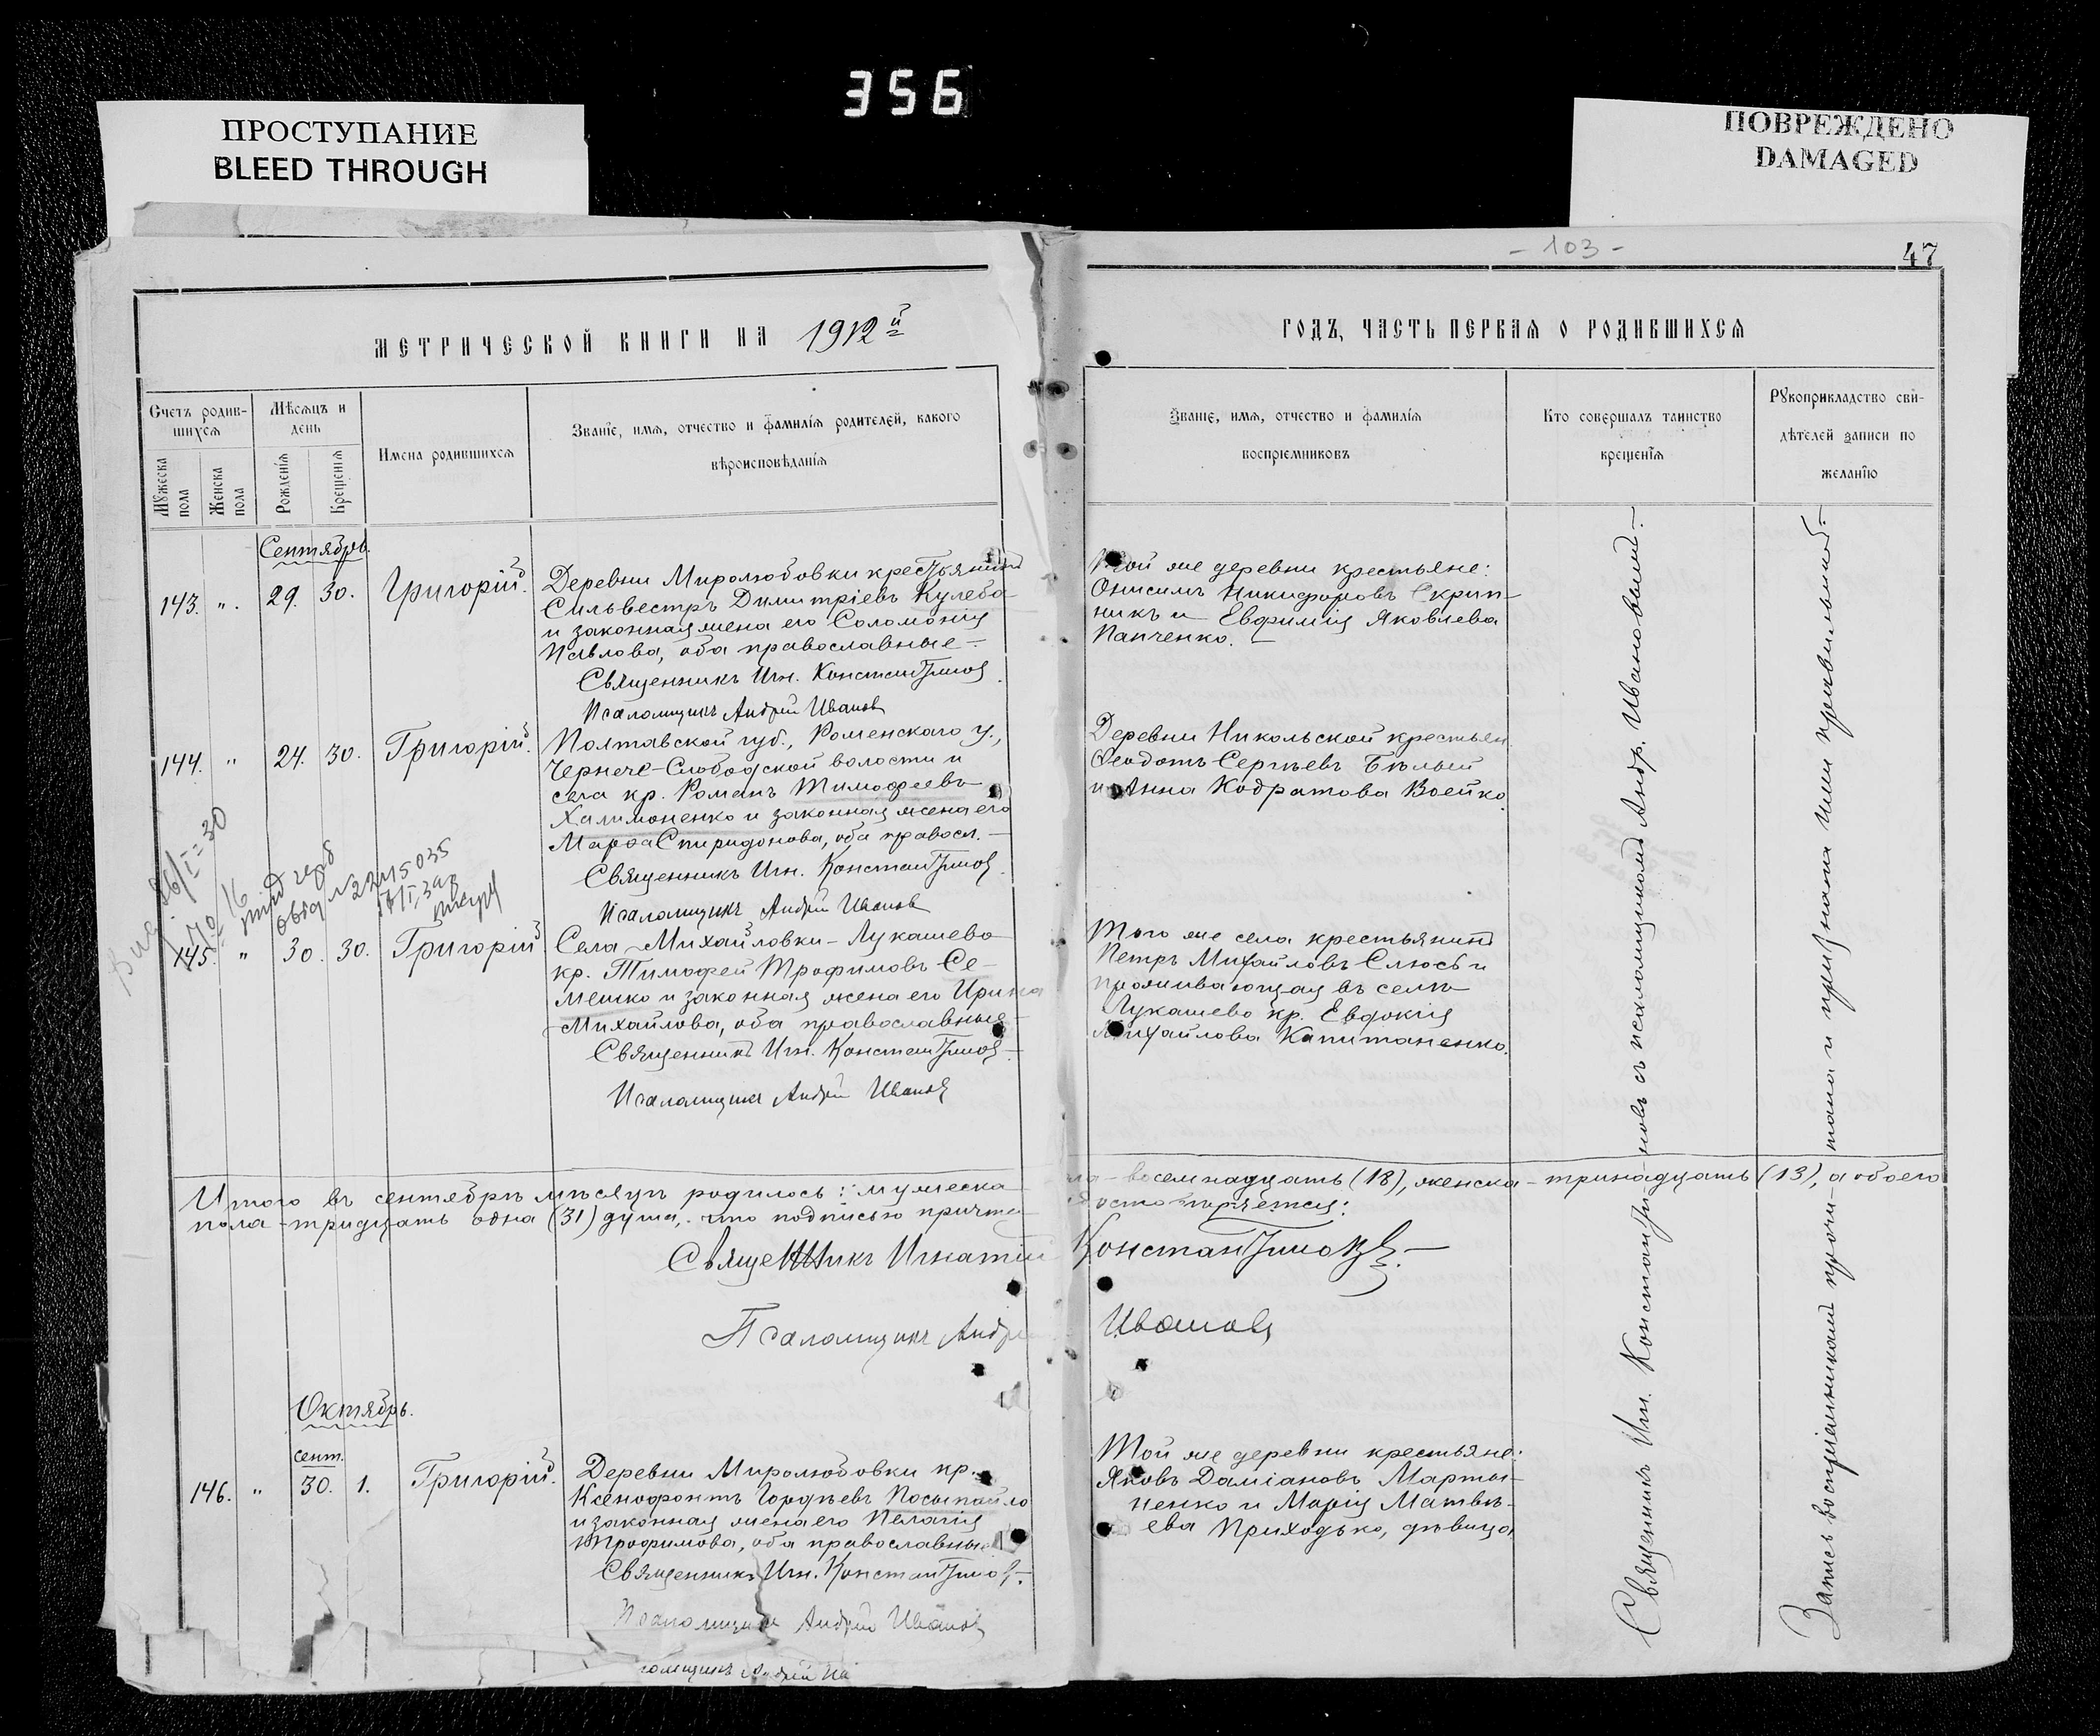 356
ПРОСТУПАНИЕ
BLEED THROUGH
ПОВРЕЖДЕНО
DAMAGED
- 103 -
47
МЕТРИЧЕСКОЙ КНИГИ НА 1912й
ГОДЪ, ЧАСТЬ ПЕРВАЯ О РОДИВШИХСЯ
Счетъ родив-
шихся
Мужеска пола
Женска пола
Мѣсяцъ и
день
Рожденія
Крещенія
Имена родившихся
Званіе, имя, отчество и фамилія родителей, какого
вѣроисповѣданія
Званіе, имя, отчество и фамилія
воспріемниковъ
Кто совершалъ таинство
крещенія
Рукоприкладство сви-
дѣтелей записи по
желанію
Сентябрь.
143. ". 29. 30. Григорій.
Деревни Миролюбовки крестьянинъ
Сильвестръ Димитріевъ Кулеба
и законная жена его Соломонія
Павлова, оба православные -
Священникъ Игн. Константиновъ
Псаломщикъ Андрей Ивановъ
Той же деревни крестьяне:
Онисимъ Никифоровъ Скрип-
никъ и Евфимія Яковлева
Панченко.
144. " 24. 30. Григорій.
Полтавской губ., Роменскаго у.,
Чернече-Слободской волости и
села кр. Романъ Тимофеевъ
Халимоненко и законная жена его
Марфа Спиридонова, оба правосл. -
Священникъ Игн. Константиновъ
Псаломщикъ Андрей Ивановъ
Деревни Никольской крестьян.
Феодотъ Сергѣевъ Бѣлый
и Анна Кодратова Воейко
26/I-30
145. " 30. 30. Григорій
Села Михайловки-Лукашево
кр. Тимофей Трофимовъ Се-
мешко и законная жена его Ирина
Михайлова, оба православные -
Священникъ Игн. Константиновъ
Псаломщикъ Андрей Ивановъ
Того же села крестьянинъ
Петръ Михайловъ Слюсь и
проживающая въ селѣ
Лукашево кр. Евдокія
Михайлова Капитаненко.
Итого въ сентябрѣ мѣсяцѣ родилось: мужеска
по- восемнадцать (18), женска - тринадцать (13), а обоего
пола - тридцать одна (31) душа, что подписью причта
удостовѣряется:
Священникъ Игнатій Константиновъ. -
Псаломщикъ Андрей Ивановъ
Октябрь.
сент.
146. " 30. 1. Григорій.
Деревни Миролюбовки кр.
Ксенофонтъ Гордѣевъ Посыпайло
и законная жена его Пелагія
Трофимова, оба православные
Священникъ Игн. Константиновъ.
Псаломщикъ Андрей Ивановъ
Той же деревни крестьяне:
Яковъ Даміановъ Марты-
ненко и Марія Матвѣ-
ева Приходько, дѣвица
ломщикъ Андрей Ив
Священникъ Игн. Константиновъ съ псаломщикомъ Андр. Ивановымъ. -
Запись воспріемниками прочитана и признана ими правильной. -